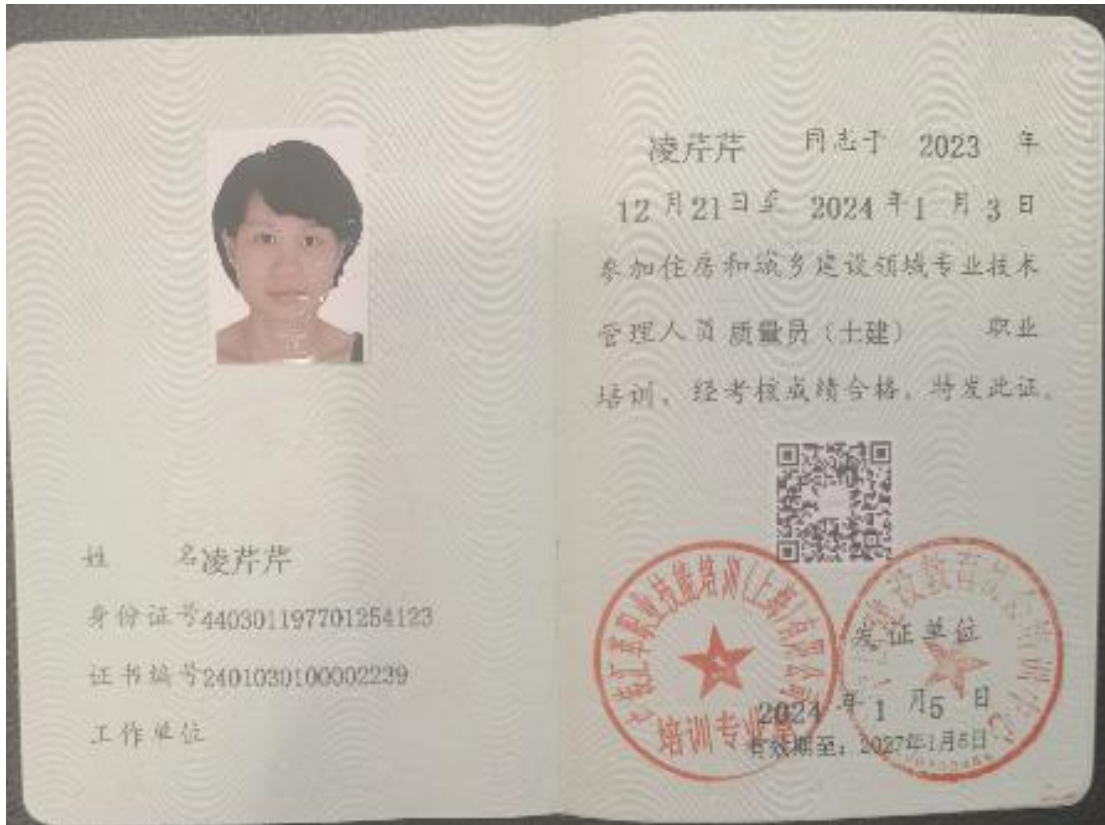 姓 名凌芹芹
身份证号440301197701254123
证书编号2401030100002239
工作单位
凌芹芹 同志于 2023 年
12 月 21 日至 2024 年 1 月 3 日
参加住房和城乡建设领域专业技术
管理人员 质量员（土建） 职业
培训，经考核成绩合格，特发此证。
职业技能培训(上海)有限公司
培训专业章
发证单位
2024 年 1 月 5 日
有效期至：2027年1月5日